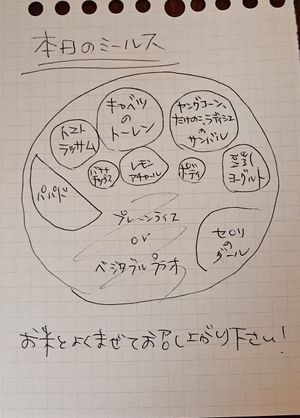 本日のミールス
キャベツ
の
トーレン
ヤングコーン、
たけのこ、ラディッシュ
の
サンバル
トマト
ラッサム
バナナ
チップス
レモン
アチャール
ヨーグルト
パパド
プレーンライス
or
ベジタブルプラオ
セロリ
の
ダール
お米とよくまぜてお召し上がり下さい!